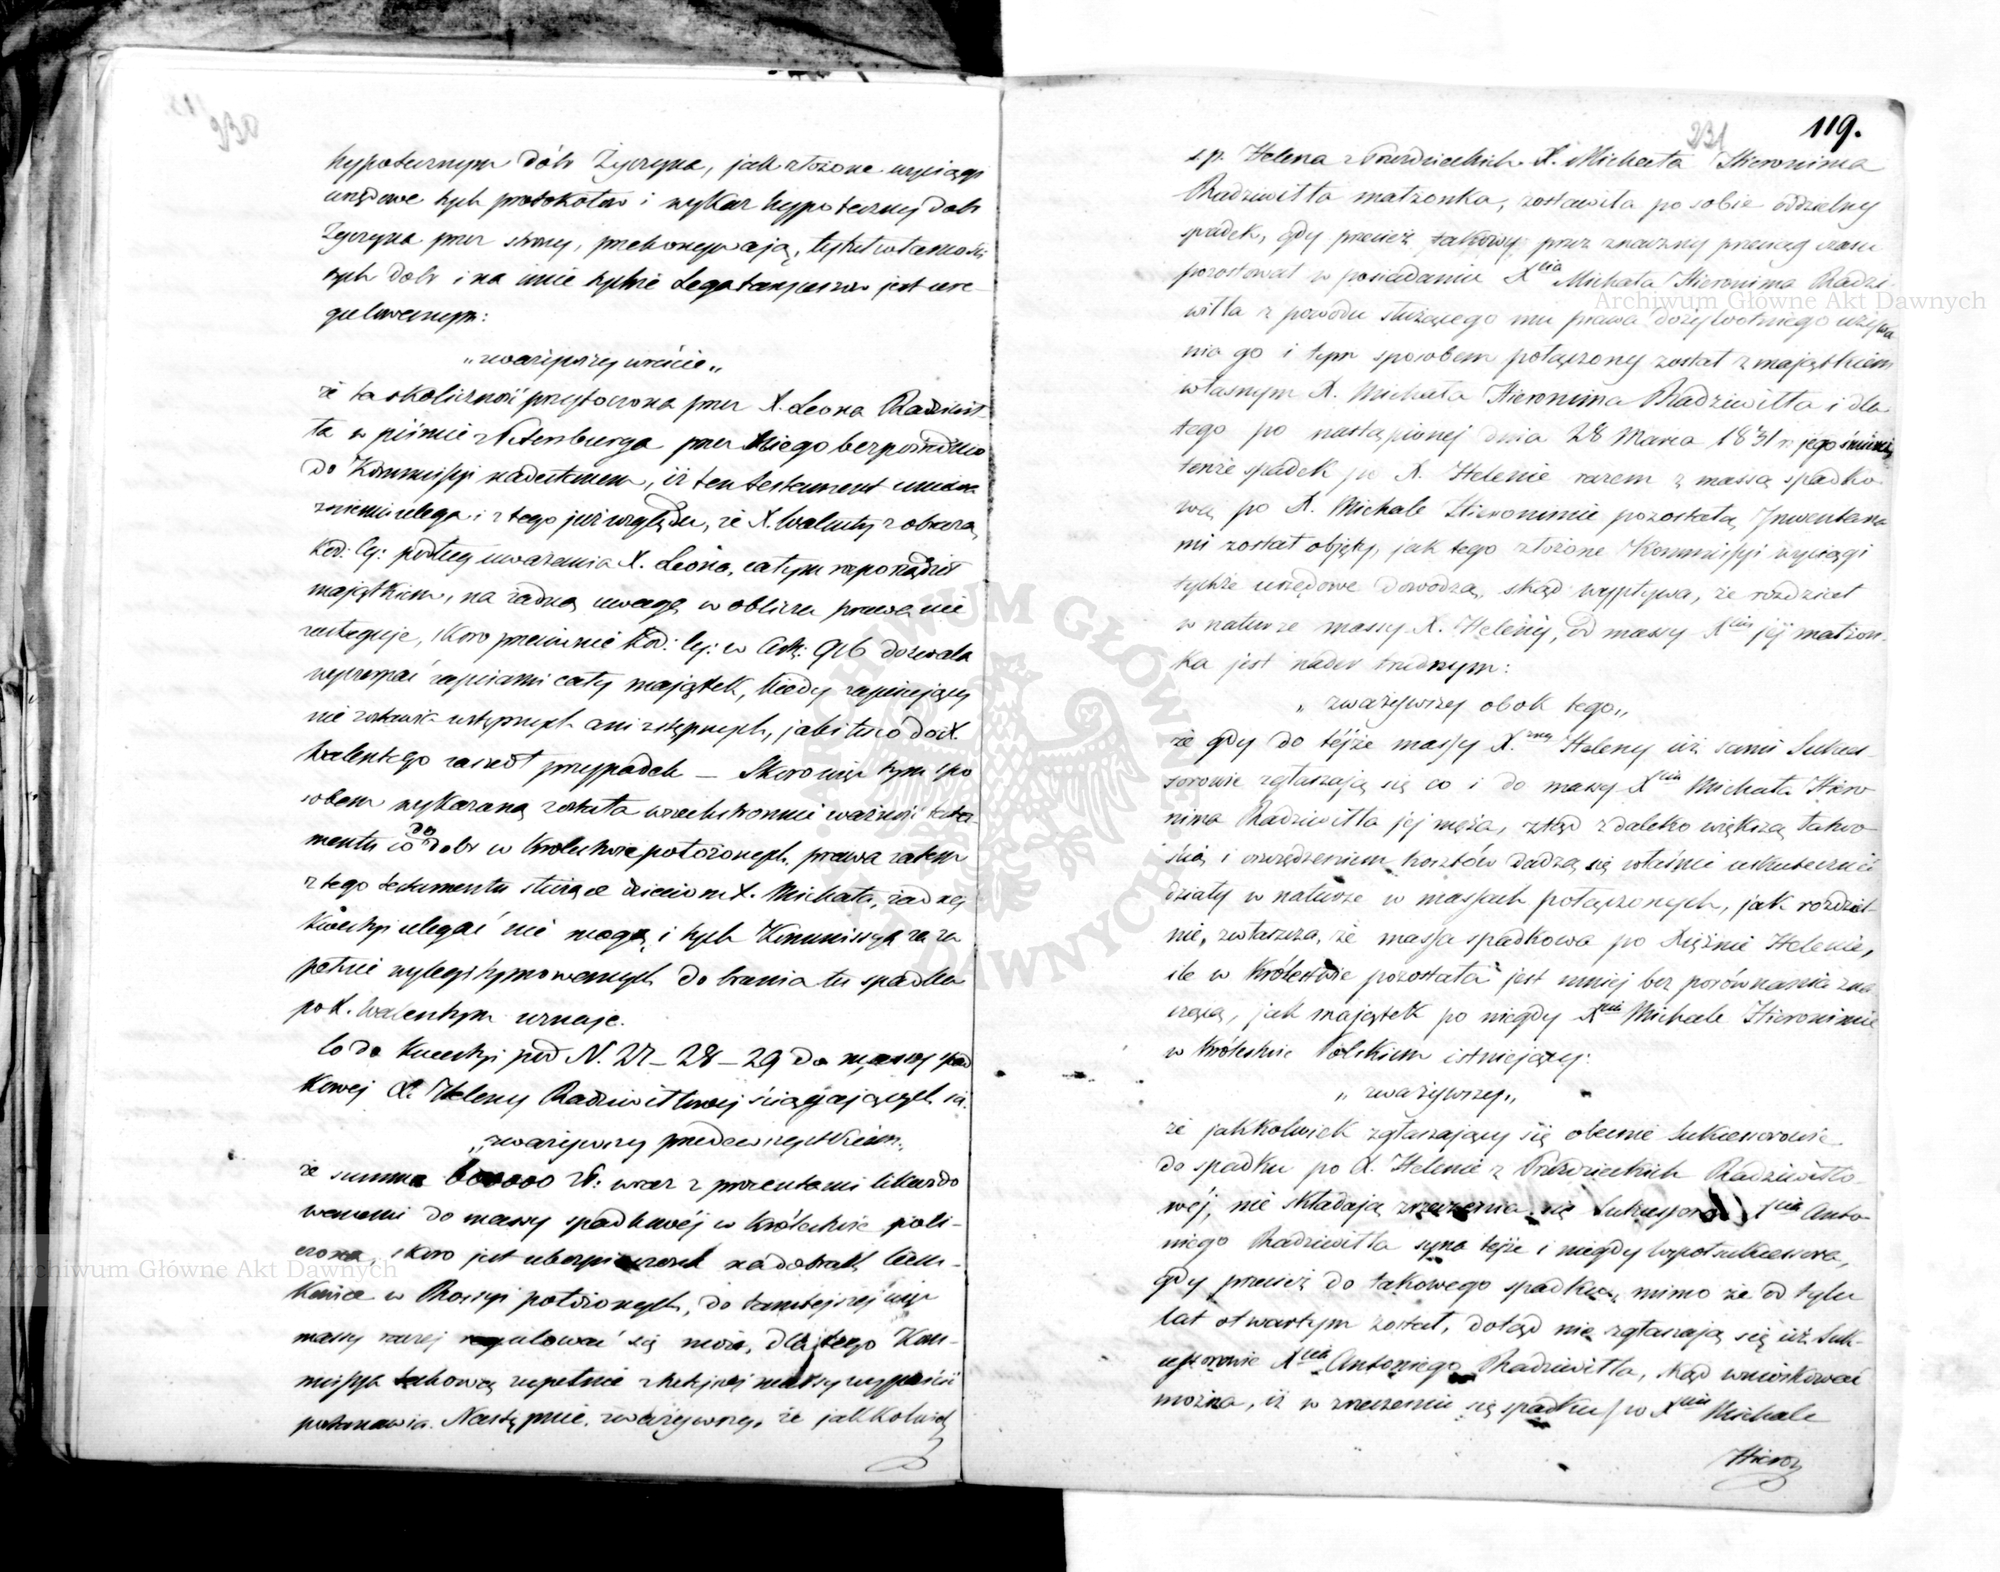 230
hypotecznym dóbr Życzyna, jak złożone wyciągi
urzędowe tych protokołów i wykaz hypoteczny dóbr
Życzyna przez strony, przekonywają, tytuł własności
tych dóbr i na imie tychże Legataryuszów jest ure-
gulowanym:
„zważywszy wreście„
że ta okoliczność przytoczona przez X. Leona Radziwił-
ła w piśmie z Petersburga przez Niego bezpośrednio
do Kommissyi nadesłanem, iż ten testament unieważ
nieniu ulega i z tego już względu, że X. Walenty z obrazą
Kod: Cy: podług uważania X. Leona, całym rozporządził
majątkiem, na żadną uwagę w obliczu prawa nie
zasługuje, skoro przeciwnie Kod: Cy: w Art: 916 dozwala
wyczerpać zapisami cały majątek, kiedy zapisujący
nie zostawia wstępnych ani zstępnych, jak tu co do X.
Walentego zaszedł przypadek — Skoro więc tym spo
sobem wykazaną została wszechstronnie ważność testa-
mentu co do dóbr w Królestwie położonych, prawa zatem
z tego testamentu służące dzieciom X. Michała, żadnej
kwestyi ulegać nie mogą, i tych Kommissya za zu
pełnie wylegitymowanych do brania tu spadku
po X. Walentym uznaje.
Co do kwestyi pod N. 27 – 28 – 29 do massy spad
kowej X. Heleny Radziwiłłowej ściągających się.
„zważywszy przedewszystkiem„
że summa 600000 Zł: wraz z procentami likwido
wanemi do massy spadkowéj w Królestwie poli-
czona, skoro jest ubezpieczoną na dobrach
w Rossyi położonych, do tamtejszej więc
massy raczej regulować się może, dla tego Kom-
missya takową zupełnie z tutejszej massy wypuścić
postanawia. Następnie, zważywszy, że jakkolwiek
231
119.
s.p. Helena z Przezdzieckich X. Michała Hieronima
Radziwiłła małżonka, zostawiła po sobie oddzielny
spadek, gdy przecież takowy przez znaczny przeciąg czasu
pozostawał w posiadaniu Xcia Michała Hieronima Radzi-
wiłła z powodu służącego mu prawa dożywotniego używa
nia go i tym sposobem połączony został z majątkiem
własnym X. Michała Hieronima Radziwiłła i dla
tego po nastąpionej dnia 28 Marca 1831 r. jego śmierci,
tenże spadek po X. Helenie razem z massą spadko
wą po X. Michale Hieronimie pozostałą Inwentarza
mi został objęty, jak tego złożone Kommissyi wyciągi
tychże urzędowe dowodzą, skąd wypływa, że rozdział
w naturze massy X. Heleny, od massy Xcia jéj małżon-
ka jest nader trudnym:
„ zważywszy obok tego„
że gdy do téjże massy X.żnej Heleny ciż sami Sukces-
sorowie zgłaszają się co i do massy Xcia Michała Hiero
nima Radziwiłła jej męża, ztąd z daleko większą łatwo
ścią i oszczędzeniem kosztów dadzą się właśnie uskutecznić
działy w naturze w massach połączonych, jak rozdziel-
nie, zwłaszcza, że massa spadkowa po Xiężnie Helenie,
ile w Królestwie pozostała jest mniej bez porównania zna
czącą, jak majątek po niegdy Xciu Michale Hieronimie
w Królestwie Polskiem istniejący:
„ zważywszy„
że jakkolwiek zgłaszający się obecnie Sukcessorowie
do spadku po X. Helenie z Przezdzieckich Radziwiłło-
wéj, nie składają zrzeczenia się Sukcessorów Xcia Anto
niego Radziwiłła syna tejże i niegdy współsukcessora,
gdy przecież do takowego spadku, mimo że od tylu
lat otwartym został, dotąd nie zgłaszają się ciż Suk-
cessorowie Xcia Antoniego Radziwiłła, skąd wnioskować
można, iż w zrzeczeniu się spadku po Xciu Michale
Hieroni
Archiwum Główne Akt Dawnych
Archiwum Główne Akt Dawnych
ARCHIWUM GŁÓWNE AKT DAWNYCH